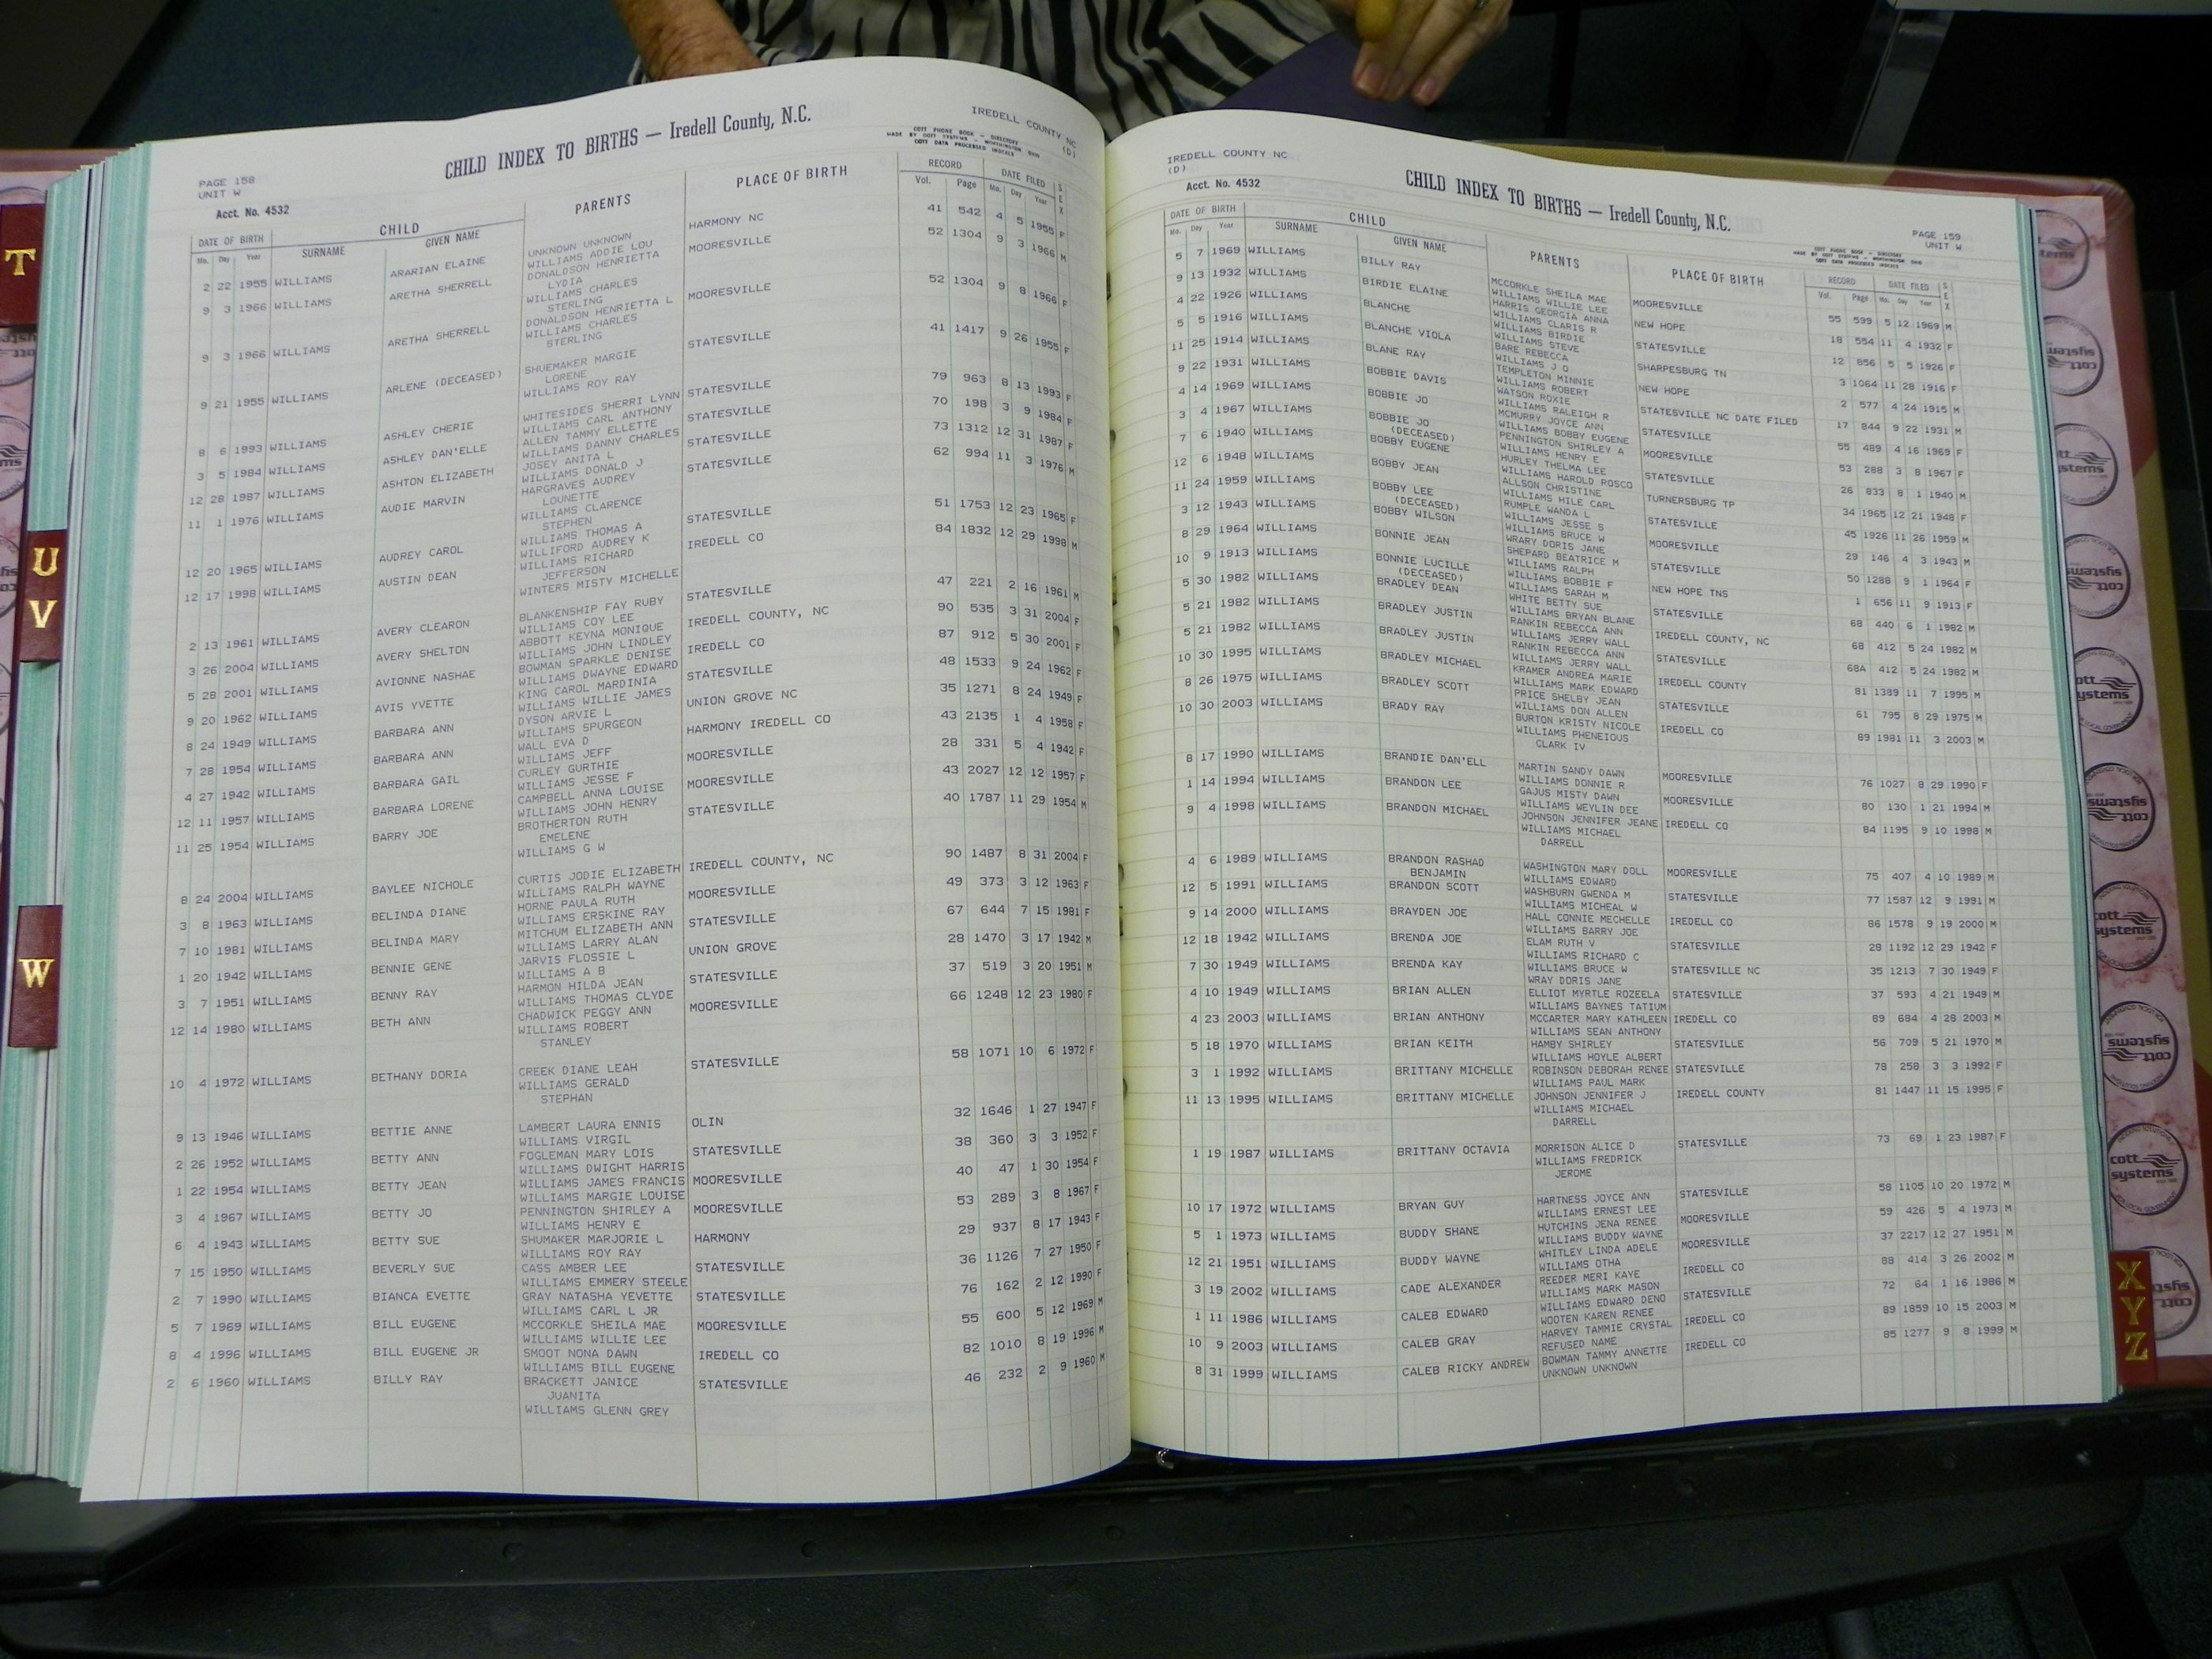 T
U
V
W
PAGE 158
UNIT W
CHILD INDEX TO BIRTHS — Iredell County, N.C.
IREDELL COUNTY NC
(D)
COTT PHONE BOOK - DIRECTORY
MADE BY COTT SYSTEMS - WORTHINGTON OHIO
COTT DATA PROCESSED INDEXES
Acct. No. 4532
DATE OF BIRTH CHILD PARENTS PLACE OF BIRTH RECORD DATE FILED SEX
Mo. Day Year SURNAME GIVEN NAME Vol. Page Mo. Day Year
2 22 1955 WILLIAMS ARARIAN ELAINE UNKNOWN UNKNOWN HARMONY NC 41 542 4 5 1955 F
WILLIAMS ADDIE LOU
9 3 1966 WILLIAMS ARETHA SHERRELL DONALDSON HENRIETTA MOORESVILLE 52 1304 9 3 1966 M
LYDIA
WILLIAMS CHARLES
STERLING
9 3 1966 WILLIAMS ARETHA SHERRELL DONALDSON HENRIETTA L MOORESVILLE 52 1304 9 8 1966 F
WILLIAMS CHARLES
STERLING
9 21 1955 WILLIAMS ARLENE (DECEASED) SHUEMAKER MARGIE STATESVILLE 41 1417 9 26 1955 F
LORENE
WILLIAMS ROY RAY
8 6 1993 WILLIAMS ASHLEY CHERIE WHITESIDES SHERRI LYNN STATESVILLE 79 963 8 13 1993 F
WILLIAMS CARL ANTHONY
3 5 1984 WILLIAMS ASHLEY DAN'ELLE ALLEN TAMMY ELLETTE STATESVILLE 70 198 3 9 1984 F
WILLIAMS DANNY CHARLES
12 28 1987 WILLIAMS ASHTON ELIZABETH JOSEY ANITA L STATESVILLE 73 1312 12 31 1987 F
WILLIAMS DONALD J
11 1 1976 WILLIAMS AUDIE MARVIN HARGRAVES AUDREY STATESVILLE 62 994 11 3 1976 M
LOUNETTE
WILLIAMS CLARENCE
STEPHEN
12 20 1965 WILLIAMS AUDREY CAROL WILLIAMS THOMAS A STATESVILLE 51 1753 12 23 1965 F
WILLIFORD AUDREY K
12 17 1998 WILLIAMS AUSTIN DEAN WILLIAMS RICHARD IREDELL CO 84 1832 12 29 1998 M
JEFFERSON
WINTERS MISTY MICHELLE
2 13 1961 WILLIAMS AVERY CLEARON BLANKENSHIP FAY RUBY STATESVILLE 47 221 2 16 1961 M
WILLIAMS COY LEE
3 26 2004 WILLIAMS AVERY SHELTON ABBOTT KEYNA MONIQUE IREDELL COUNTY, NC 90 535 3 31 2004 F
WILLIAMS JOHN LINDLEY
5 28 2001 WILLIAMS AVIONNE NASHAE BOWMAN SPARKLE DENISE IREDELL CO 87 912 5 30 2001 F
WILLIAMS DWAYNE EDWARD
9 20 1962 WILLIAMS AVIS YVETTE KING CAROL MARDINIA STATESVILLE 48 1533 9 24 1962 F
WILLIAMS WILLIE JAMES
8 24 1949 WILLIAMS BARBARA ANN DYSON ARVIE L UNION GROVE NC 35 1271 8 24 1949 F
WILLIAMS SPURGEON
7 28 1954 WILLIAMS BARBARA ANN WALL EVA D HARMONY IREDELL CO 43 2135 1 4 1958 F
WILLIAMS JEFF
4 27 1942 WILLIAMS BARBARA GAIL CURLEY GURTHIE MOORESVILLE 28 331 5 4 1942 F
WILLIAMS JESSE F
12 11 1957 WILLIAMS BARBARA LORENE CAMPBELL ANNA LOUISE MOORESVILLE 43 2027 12 12 1957 F
WILLIAMS JOHN HENRY
11 25 1954 WILLIAMS BARRY JOE BROTHERTON RUTH STATESVILLE 40 1787 11 29 1954 M
EMELENE
WILLIAMS G W
8 24 2004 WILLIAMS BAYLEE NICHOLE CURTIS JODIE ELIZABETH IREDELL COUNTY, NC 90 1487 8 31 2004 F
WILLIAMS RALPH WAYNE
3 8 1963 WILLIAMS BELINDA DIANE HORNE PAULA RUTH MOORESVILLE 49 373 3 12 1963 F
WILLIAMS ERSKINE RAY
7 10 1981 WILLIAMS BELINDA MARY MITCHUM ELIZABETH ANN STATESVILLE 67 644 7 15 1981 F
WILLIAMS LARRY ALAN
1 20 1942 WILLIAMS BENNIE GENE JARVIS FLOSSIE L UNION GROVE 28 1470 3 17 1942 M
WILLIAMS A B
3 7 1951 WILLIAMS BENNY RAY HARMON HILDA JEAN STATESVILLE 37 519 3 20 1951 M
WILLIAMS THOMAS CLYDE
12 14 1980 WILLIAMS BETH ANN CHADWICK PEGGY ANN MOORESVILLE 66 1248 12 23 1980 F
WILLIAMS ROBERT
STANLEY
10 4 1972 WILLIAMS BETHANY DORIA CREEK DIANE LEAH STATESVILLE 58 1071 10 6 1972 F
WILLIAMS GERALD
STEPHAN
9 13 1946 WILLIAMS BETTIE ANNE LAMBERT LAURA ENNIS OLIN 32 1646 1 27 1947 F
WILLIAMS VIRGIL
2 26 1952 WILLIAMS BETTY ANN FOGLEMAN MARY LOIS STATESVILLE 38 360 3 3 1952 F
WILLIAMS DWIGHT HARRIS
1 22 1954 WILLIAMS BETTY JEAN WILLIAMS JAMES FRANCIS MOORESVILLE 40 47 1 30 1954 F
WILLIAMS MARGIE LOUISE
3 4 1967 WILLIAMS BETTY JO PENNINGTON SHIRLEY A MOORESVILLE 53 289 3 8 1967 F
WILLIAMS HENRY E
6 4 1943 WILLIAMS BETTY SUE SHUMAKER MARJORIE L HARMONY 29 937 8 17 1943 F
WILLIAMS ROY RAY
7 15 1950 WILLIAMS BEVERLY SUE CASS AMBER LEE STATESVILLE 36 1126 7 27 1950 F
WILLIAMS EMMERY STEELE
2 7 1990 WILLIAMS BIANCA EVETTE GRAY NATASHA YEVETTE STATESVILLE 76 162 2 12 1990 F
WILLIAMS CARL L JR
5 7 1969 WILLIAMS BILL EUGENE MCCORKLE SHEILA MAE MOORESVILLE 55 600 5 12 1969 M
WILLIAMS WILLIE LEE
8 4 1996 WILLIAMS BILL EUGENE JR SMOOT NONA DAWN IREDELL CO 82 1010 8 19 1996 M
WILLIAMS BILL EUGENE
2 6 1960 WILLIAMS BILLY RAY BRACKETT JANICE STATESVILLE 46 232 2 9 1960 M
JUANITA
WILLIAMS GLENN GREY
IREDELL COUNTY NC
(D)
Acct. No. 4532
CHILD INDEX TO BIRTHS — Iredell County, N.C.
PAGE 159
UNIT W
COTT PHONE BOOK - DIRECTORY
MADE BY COTT SYSTEMS - WORTHINGTON OHIO
COTT DATA PROCESSED INDEXES
DATE OF BIRTH CHILD PARENTS PLACE OF BIRTH RECORD DATE FILED SEX
Mo. Day Year SURNAME GIVEN NAME Vol. Page Mo. Day Year
5 7 1969 WILLIAMS BILLY RAY MCCORKLE SHEILA MAE MOORESVILLE 55 599 5 12 1969 M
WILLIAMS WILLIE LEE
9 13 1932 WILLIAMS BIRDIE ELAINE HARRIS GEORGIA ANNA NEW HOPE 18 554 11 4 1932 F
WILLIAMS CLARIS R
4 22 1926 WILLIAMS BLANCHE WILLIAMS BIRDIE STATESVILLE 12 856 5 5 1926 F
WILLIAMS STEVE
5 5 1916 WILLIAMS BLANCHE VIOLA BARE REBECCA SHARPESBURG TN 3 1064 11 28 1916 F
WILLIAMS J O
11 25 1914 WILLIAMS BLANE RAY TEMPLETON MINNIE NEW HOPE 2 577 4 24 1915 M
WILLIAMS ROBERT
9 22 1931 WILLIAMS BOBBIE DAVIS WATSON ROXIE STATESVILLE NC DATE FILED 17 844 9 22 1931 M
WILLIAMS RALEIGH R
4 14 1969 WILLIAMS BOBBIE JO MCMURRY JOYCE ANN STATESVILLE 55 489 4 16 1969 F
WILLIAMS BOBBY EUGENE
3 4 1967 WILLIAMS BOBBIE JO PENNINGTON SHIRLEY A MOORESVILLE 53 288 3 8 1967 F
(DECEASED) WILLIAMS HENRY E
7 6 1940 WILLIAMS BOBBY EUGENE HURLEY THELMA LEE STATESVILLE 26 833 8 1 1940 M
WILLIAMS HAROLD ROSCO
12 6 1948 WILLIAMS BOBBY JEAN ALLSON CHRISTINE TURNERSBURG TP 34 1965 12 21 1948 F
WILLIAMS HILE CARL
11 24 1959 WILLIAMS BOBBY LEE RUMPLE WANDA L STATESVILLE 45 1926 11 26 1959 M
(DECEASED) WILLIAMS JESSE S
3 12 1943 WILLIAMS BOBBY WILSON WILLIAMS BRUCE W MOORESVILLE 29 146 4 3 1943 M
WRARY DORIS JANE
8 29 1964 WILLIAMS BONNIE JEAN SHEPARD BEATRICE M STATESVILLE 50 1288 9 1 1964 F
WILLIAMS RALPH
10 9 1913 WILLIAMS BONNIE LUCILLE WILLIAMS BOBBIE F NEW HOPE TNS 1 656 11 9 1913 F
(DECEASED) WILLIAMS SARAH M
5 30 1982 WILLIAMS BRADLEY DEAN WHITE BETTY SUE STATESVILLE 68 440 6 1 1982 M
WILLIAMS BRYAN BLANE
5 21 1982 WILLIAMS BRADLEY JUSTIN RANKIN REBECCA ANN IREDELL COUNTY, NC 68 412 5 24 1982 M
WILLIAMS JERRY WALL
5 21 1982 WILLIAMS BRADLEY JUSTIN RANKIN REBECCA ANN STATESVILLE 68A 412 5 24 1982 M
WILLIAMS JERRY WALL
10 30 1995 WILLIAMS BRADLEY MICHAEL KRAMER ANDREA MARIE IREDELL COUNTY 81 1389 11 7 1995 M
WILLIAMS MARK EDWARD
8 26 1975 WILLIAMS BRADLEY SCOTT PRICE SHELBY JEAN STATESVILLE 61 795 8 29 1975 M
WILLIAMS DON ALLEN
10 30 2003 WILLIAMS BRADY RAY BURTON KRISTY NICOLE IREDELL CO 89 1981 11 3 2003 M
WILLIAMS PHENEIOUS
CLARK IV
8 17 1990 WILLIAMS BRANDIE DAN'ELL MARTIN SANDY DAWN MOORESVILLE 76 1027 8 29 1990 F
WILLIAMS DONNIE R
1 14 1994 WILLIAMS BRANDON LEE GAJUS MISTY DAWN MOORESVILLE 80 130 1 21 1994 M
WILLIAMS WEYLIN DEE
9 4 1998 WILLIAMS BRANDON MICHAEL JOHNSON JENNIFER JEANE IREDELL CO 84 1195 9 10 1998 M
WILLIAMS MICHAEL
DARRELL
4 6 1989 WILLIAMS BRANDON RASHAD WASHINGTON MARY DOLL MOORESVILLE 75 407 4 10 1989 M
BENJAMIN WILLIAMS EDWARD
12 5 1991 WILLIAMS BRANDON SCOTT WASHBURN GWENDA M STATESVILLE 77 1587 12 9 1991 M
WILLIAMS MICHEAL W
9 14 2000 WILLIAMS BRAYDEN JOE HALL CONNIE MECHELLE IREDELL CO 86 1578 9 19 2000 M
WILLIAMS BARRY JOE
12 18 1942 WILLIAMS BRENDA JOE ELAM RUTH V STATESVILLE 28 1192 12 29 1942 F
WILLIAMS RICHARD C
7 30 1949 WILLIAMS BRENDA KAY WILLIAMS BRUCE W STATESVILLE NC 35 1213 7 30 1949 F
WRAY DORIS JANE
4 10 1949 WILLIAMS BRIAN ALLEN ELLIOT MYRTLE ROZEELA STATESVILLE 37 593 4 21 1949 M
WILLIAMS BAYNES TATIUM
4 23 2003 WILLIAMS BRIAN ANTHONY MCCARTER MARY KATHLEEN IREDELL CO 89 684 4 28 2003 M
WILLIAMS SEAN ANTHONY
5 18 1970 WILLIAMS BRIAN KEITH HAMBY SHIRLEY STATESVILLE 56 709 5 21 1970 M
WILLIAMS HOYLE ALBERT
3 1 1992 WILLIAMS BRITTANY MICHELLE ROBINSON DEBORAH RENEE STATESVILLE 78 258 3 3 1992 F
WILLIAMS PAUL MARK
11 13 1995 WILLIAMS BRITTANY MICHELLE JOHNSON JENNIFER J IREDELL COUNTY 81 1447 11 15 1995 F
WILLIAMS MICHAEL
DARRELL
1 19 1987 WILLIAMS BRITTANY OCTAVIA MORRISON ALICE D STATESVILLE 73 69 1 23 1987 F
WILLIAMS FREDRICK
JEROME
10 17 1972 WILLIAMS BRYAN GUY HARTNESS JOYCE ANN STATESVILLE 58 1105 10 20 1972 M
WILLIAMS ERNEST LEE
5 1 1973 WILLIAMS BUDDY SHANE HUTCHINS JENA RENEE MOORESVILLE 59 426 5 4 1973 M
WILLIAMS BUDDY WAYNE
12 21 1951 WILLIAMS BUDDY WAYNE WHITLEY LINDA ADELE MOORESVILLE 37 2217 12 27 1951 M
WILLIAMS OTHA
3 19 2002 WILLIAMS CADE ALEXANDER REEDER MERI KAYE IREDELL CO 88 414 3 26 2002 M
WILLIAMS MARK MASON
1 11 1986 WILLIAMS CALEB EDWARD WILLIAMS EDWARD DENO STATESVILLE 72 64 1 16 1986 M
WOOTEN KAREN RENEE
10 9 2003 WILLIAMS CALEB GRAY HARVEY TAMMIE CRYSTAL IREDELL CO 89 1859 10 15 2003 M
REFUSED NAME
8 31 1999 WILLIAMS CALEB RICKY ANDREW BOWMAN TAMMY ANNETTE IREDELL CO 85 1277 9 8 1999 M
UNKNOWN UNKNOWN
cott
systems
X
Y
Z